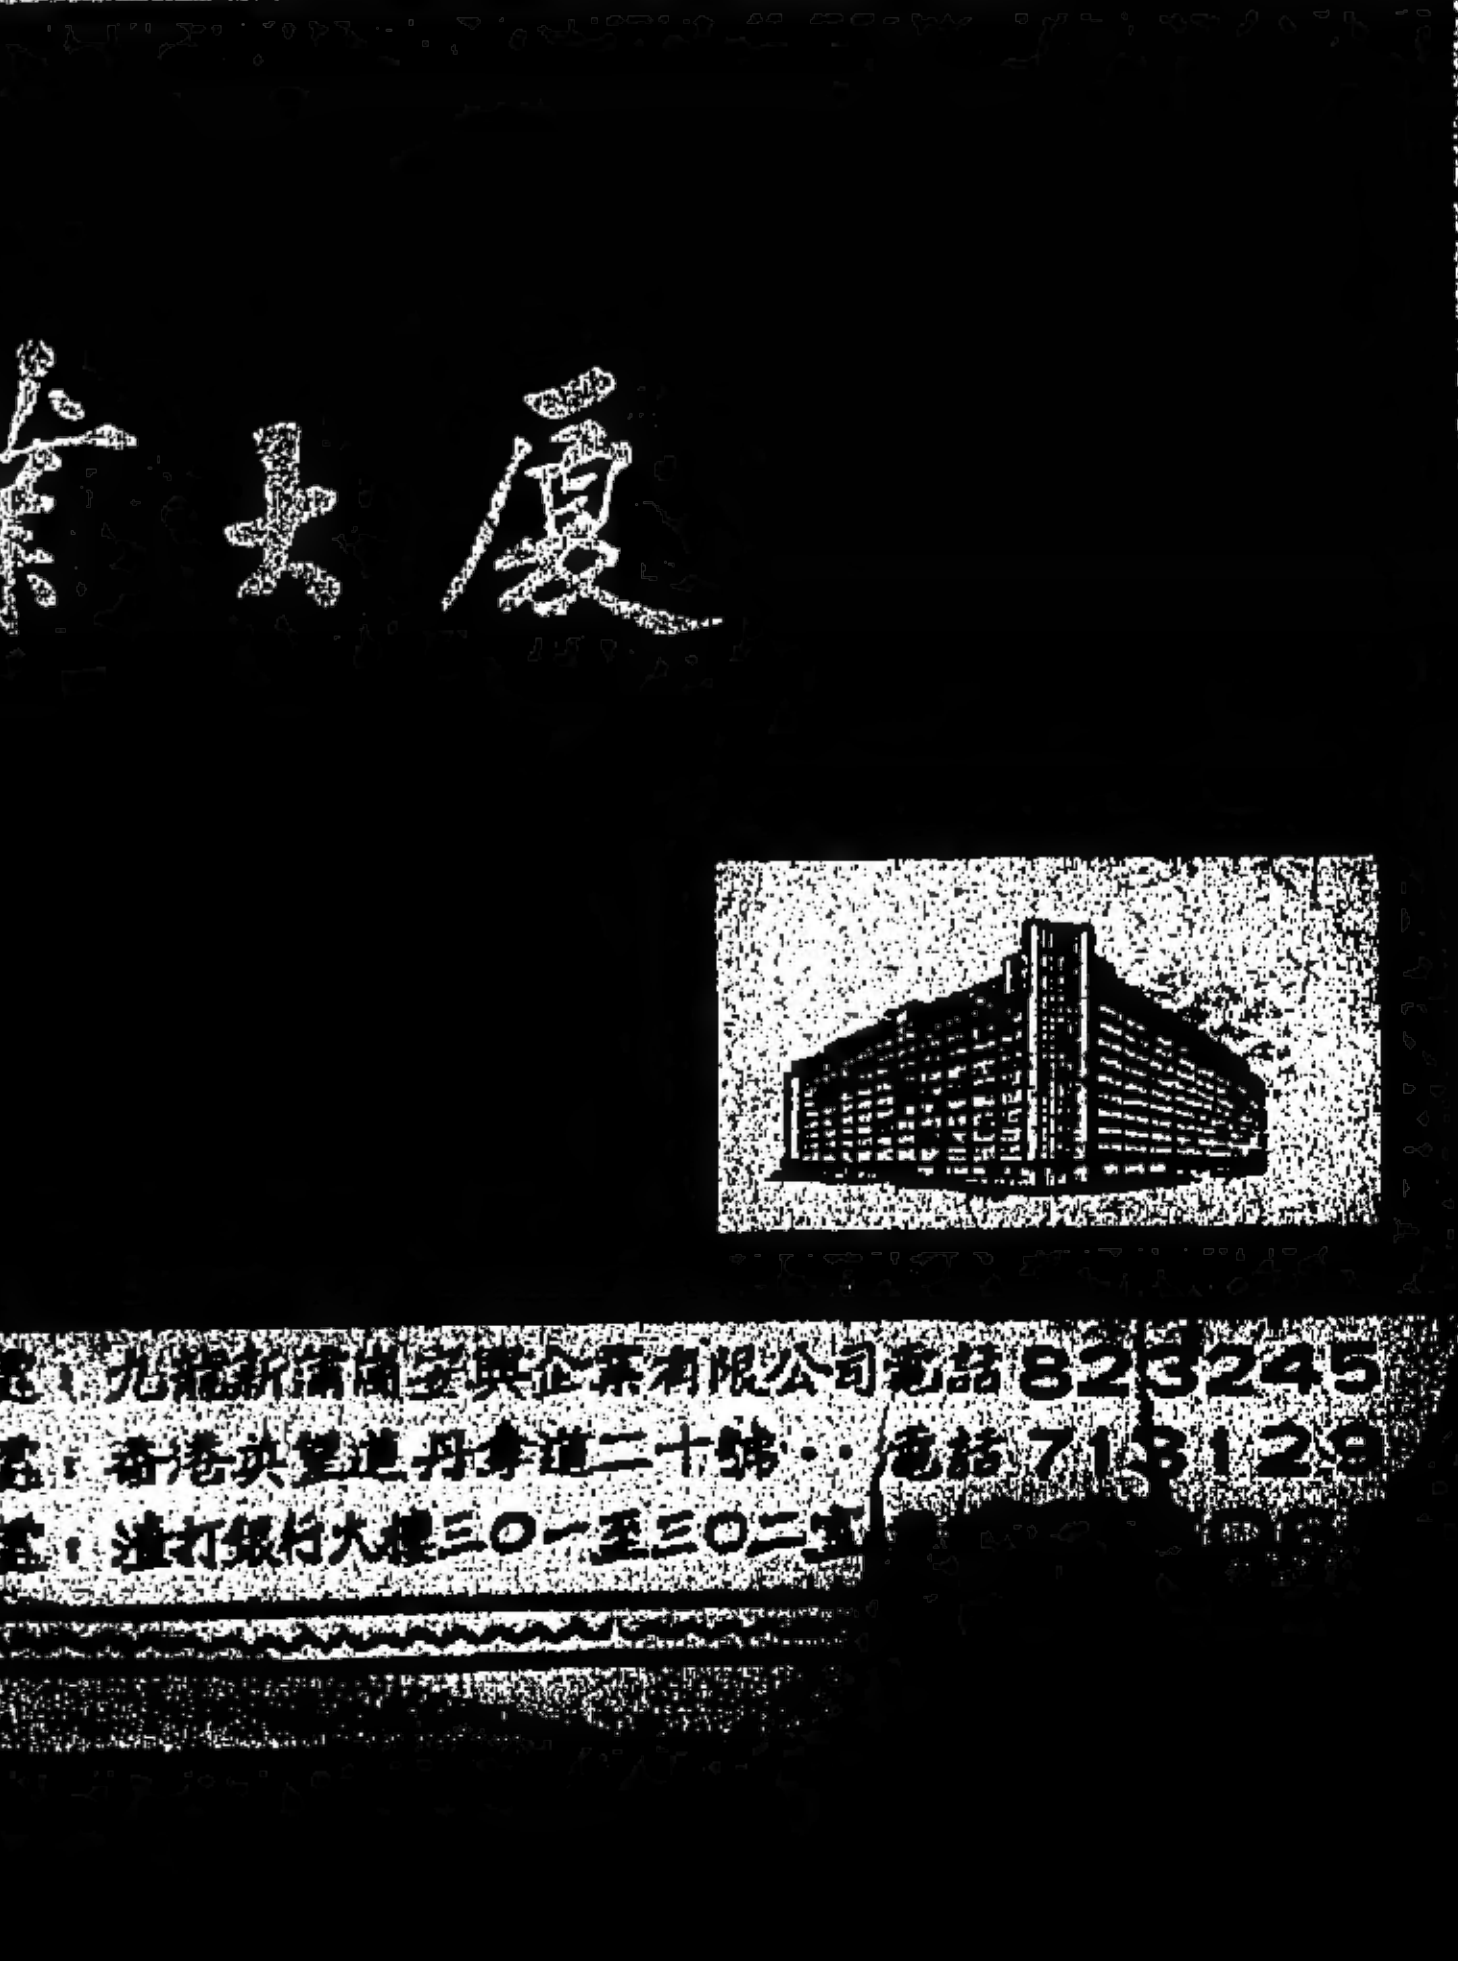 大厦
九龍新蒲崗安興企業有限公司電話823245
香港 道丹拿道二十號··電話718128
渣打銀行大樓三〇一至三〇二室